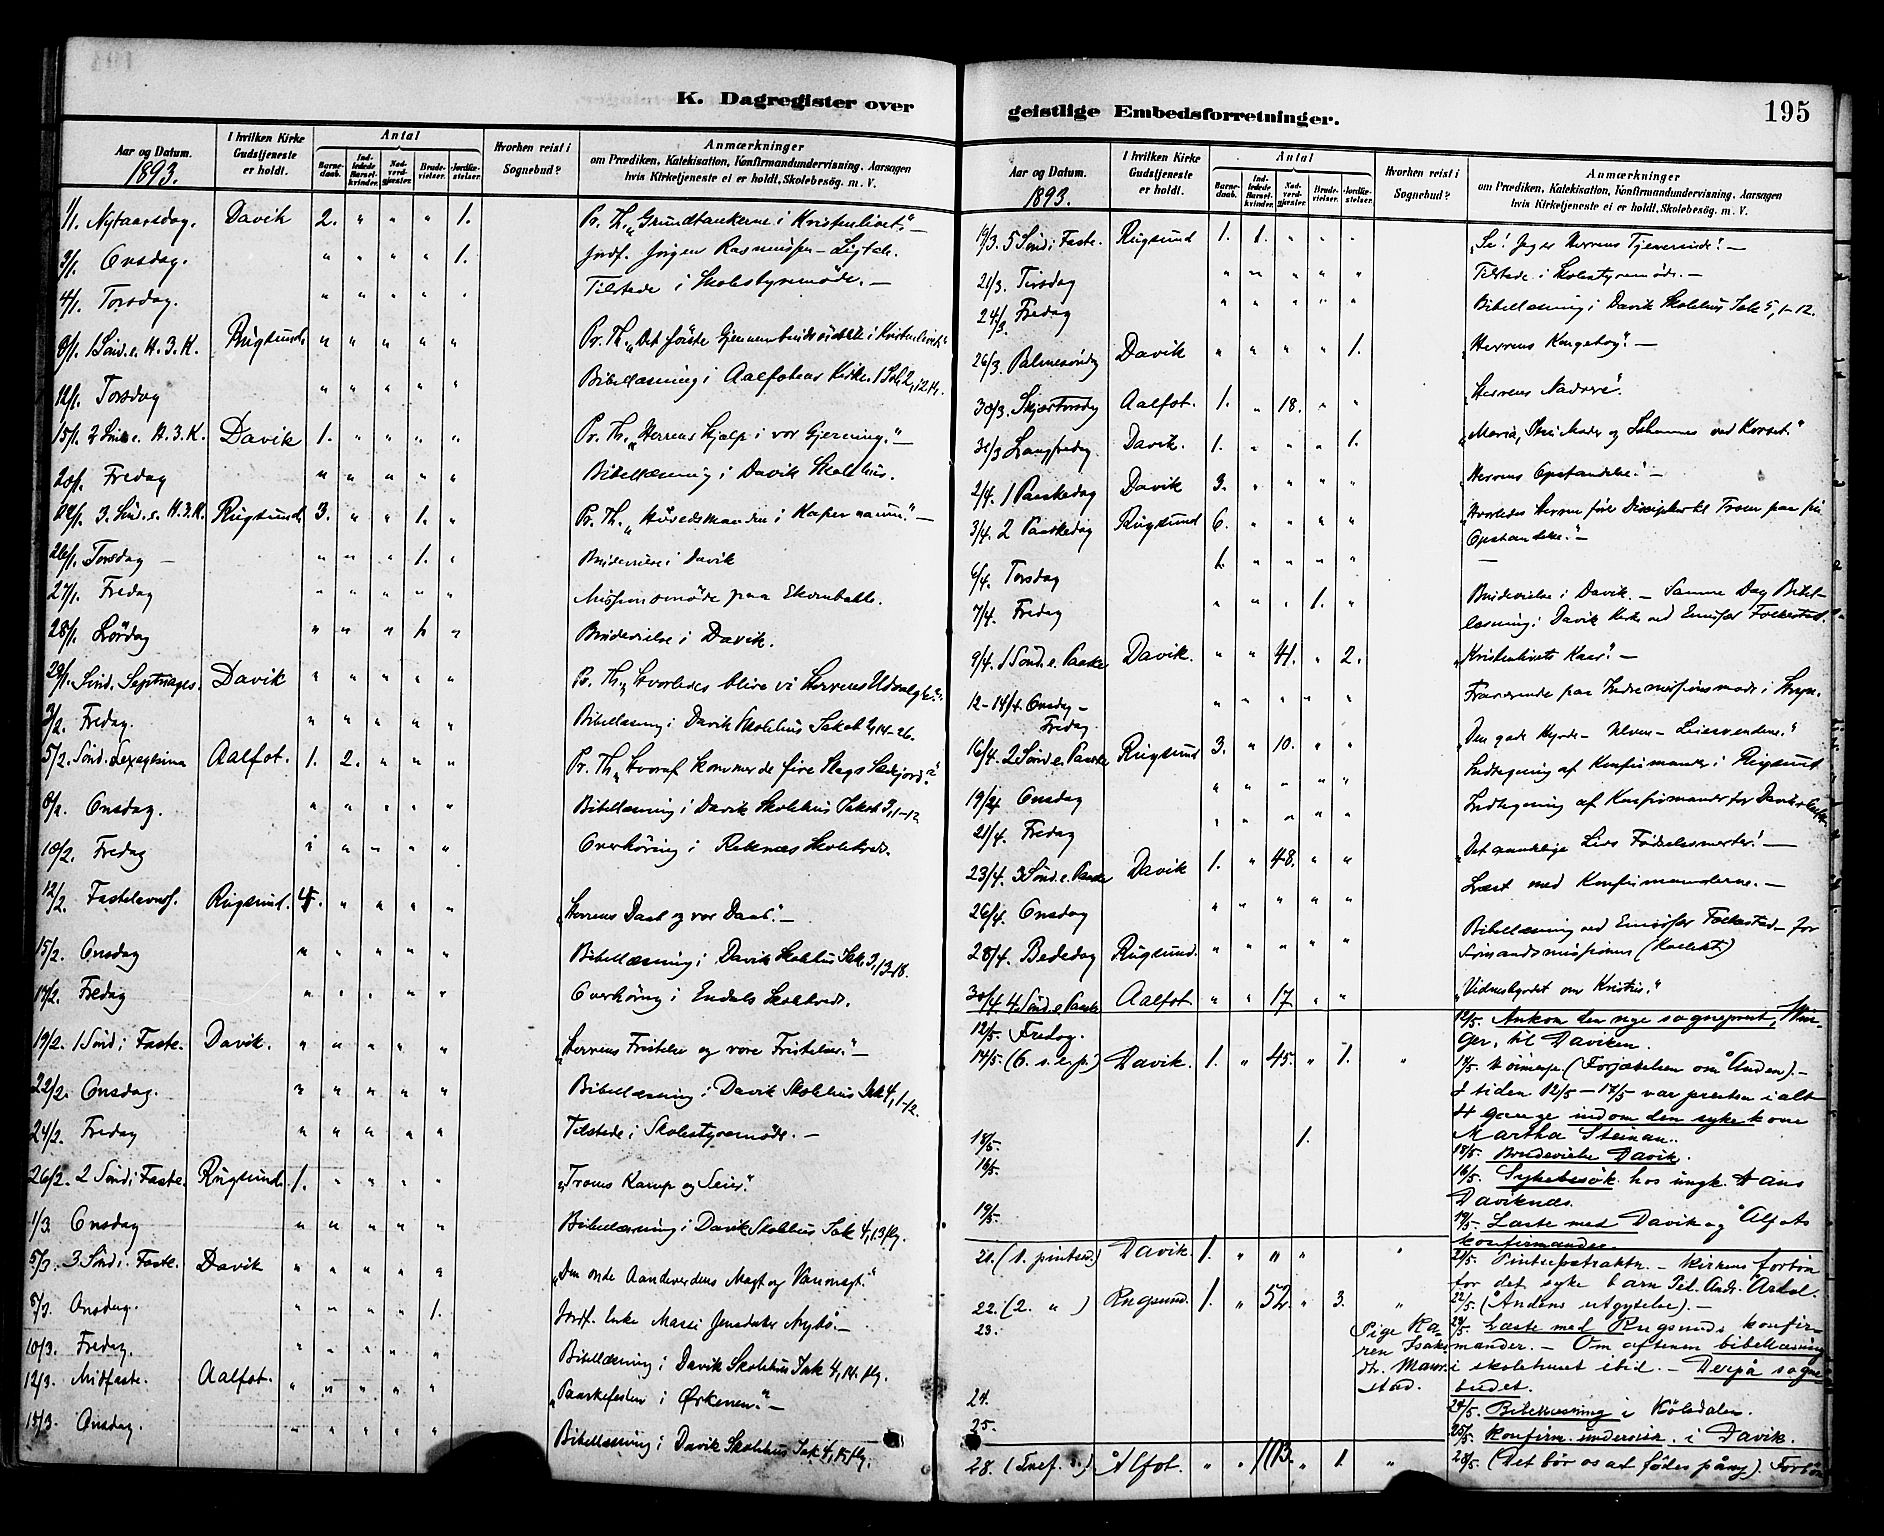 K. Dagregister over
Aar og Datum.
1893.
I hvilken Kirke Gudstjeneste er holdt.
Antal
Barnedaab.
Indledede Barselkvinder.
Nadverdgjester.
Brudevielser.
Jordfæstelser.
Hvorhen reist i Sognebud?
Anmærkninger
om Prædiken, Katekisation, Konfirmandundervisning, Aarsagen
hvis Kirketjeneste ei er holdt, Skolebesøg. m. V.
1/1. Nytaarsdag. Davik 2. " " " 1. Pr. Th. "Grundtankerne i Kristenlivet." –
3/1. Onsdag. " " " " 1. Jordf. Jørgen Rasmussen
4/1. Torsdag. " " " " " Tilstede i Skolestyremöde. –
8/1. 1 Sönd. e. H. 3. K. Rugsund. " " " " " Pr. Th. "Det förste i Kristenlivet."
12/1. Torsdag " " " " " Bibellæsning i Aalfotens Kirke.
15/1. 2 Sönd. e. H. 3. K. Davik 1. " " " " Pr. Th. "Herrens Hjælp i vor Gjerning." –
20/1. Fredag " " " " " Bibellæsning i Davik Skolehus.
22/1. 3. Sönd. e. H. 3. K. Rugsund. 3. " " 1. " Pr. Th. "Høvedsmanden i Kapernaum." –
26/1. Torsdag – " " " 1. " Brudevielse i Davik
27/1. Fredag " " " " " Missionsmöde paa
28/1. Lördag " " " 1. " Brudevielse i Davik.
29/1. Sönd. Septuages. Davik " " " " " Pr. Th. "Hvorledes blive vi Herrens Udvalgte?"
3/2. Fredag. " " " " " Bibellæsning i Davik Skolehus Jakob 2, 14–26.
5/2. Sönd. Sexagesima Aalfot. 1. 2. " " " Pr. Th. "Hvoraf kommer de fire Slags Sædjord?"
8/2. Onsdag. " " " " " Bibellæsning i Davik Skolehus Jakob 3, 1–12
10/2. Fredag " " " " Overhöring i Reknæs Skolekreds.
12/2. Fastelavnss. Rugsund. 4. " " " " "Herrens Daab og vor Daab." –
15/2. Onsdag " " " " " Bibellæsning i Davik Skolehus Jak. 3, 13–18.
17/2. Fredag " " " " " Overhöring i Endals Skolekreds.
19/2. 1 Sönd i Faste. Davik. " " " " " "Herrens Fristelse og vore Fristelser." –
22/2. Onsdag. " " " " " Bibellæsning i Davik Skolehus Jak 4, 1–12.
24/2. Fredag " " " " " Tilstede i Skolestyremöde. –
26/2. 2 Sönd i Faste. Rugsund. 1. " " " " "Troens Kamp og Seier."
1/3. Onsdag " " " " " Bibellæsning i Davik Skolehus Jak 4, 13 flg.
5/3. 3 Sönd i Faste. Davik " " " " " "Den onde Aandeverdens Magt og Vanmagt."
8/3. Onsdag. " " " " 1. Jordf. Enke Marie Jensdatter Myhö. –
10/3. Fredag. " " " " " Bibellæsning i Davik Skolehus Jak 4, 14. flg.
12/3. Midfaste. Aalfot. " " " " " "Paaskefesten i Ørkenen." –
15/3. Onsdag. " " " " " Bibellæsning i Davik Skolehus Jak 4, 15 flg.
geistlige Embedsforretninger.
195
Aar og Datum.
1893.
I hvilken Kirke Gudstjeneste er holdt.
Antal
Barnedaab.
Indledede Barselkvinder.
Nadverdgjester.
Brudevielser.
Jordfæstelser.
Hvorhen reist i Sognebud?
Anmærkninger
om Prædiken, Katekisation, Konfirmandundervisning, Aarsagen
hvis Kirketjeneste ei er holdt, Skolebesøg m. V.
19/3. 5 Sönd i Faste. Rugsund 1. 1. " " " "Se! Jeg er Herrens Tjenerinde!" –
21/3. Tirsdag " " " " " Tilstede i Skolestyremöde. –
24/3. Fredag " " " " " Bibellæsning i Davik Skolehus Jak 5, 1–12.
26/3. Palmesöndag Davik " " " " 1. "Herrens Kongetog." –
30/3. Skjærtorsdag Aalfot. 1. " 18. " " "Herrens Nadvere".
31/3 Langfredag. Davik. 1. " " " 1. "Maria, Jesu Moder og Johannes ved Korset."
2/4. 1 Paaskedag Davik 3. " " " " "Herrens Opstandelse." –
3/4. 2 Paaskedag Rugsund 6. " " " " "Hvorledes Herren förer Disciplene til Troen paa sin
Opstandelse." –
6/4. Torsdag 1. " " " " –
7/4. Fredag " " " 1. " Brudevielse i Davik. – Samme Dag Bibel-
læsning i Davik Kirke ved Emissær Folkestad.
9/4. 1 Sönd. e. Paaske Davik. " " 41. " 2. "Kristenlivets Kaar." –
12–14/4. Onsdag – Fredag " " " " " Fraværende paa Indremissionsmöde i Stryn.
16/4. 2 Sönd. e. Paaske Rugsund 3. " 10. " " "Den gode Hyrde – Ulven – Leiesvendene."
19/4 Onsdag " " " " " Indtagning af Konfirmander i Rugsund
21/4. Fredag " " " " " Indtagning af Konfirmander for Davik
23/4. 3 Sönd. e. Paaske Davik 1. " 48. " " "Det aandelige Livs Födselssmerter." –
26/4. Onsdag " " " " " Læst med Konfirmanderne. –
28/4. Bededag Rugsund. " " " " " Bibellæsning ved Emissær Folkestad – for
Sömandsmissionen (Kollekt)
30/4. 4 Sönd. e. Paaske Aalfot " " 17 " " "Vidnesbyrdet om Kristus."
12/5. Fredag. 12/5. Ankom den nye sogneprest, Win-
ger, til Daviken.
14/5. (6. s. e. p.) Davik. 1. " 45. " 1. " 14/5. Höimesse (Forjættelsen om Ånden). –
I tiden 12/5 – 17/5 var presten i alt
4 gange indom den syke kone
Martha Steinan.
15/5. 1. 15/5. Brudevielse Davik.
16/5. 16/5. Sykebesök hos ungk. Hans
Daviknes.
19/5. 19/5. Læste med Davik og Alfots
konfirmander.
21. (1. pintsed.) Davik. 1. " " " " 21/5. – Kirkens forbön
for det syke barn
22. (2. " ) Rugsund. 1. " 52. " 3. " 22/5. (Åndens utgytelse). –
23. Pige Ka-
ren Isaks-
dt. Maur-
stad. Læste med Rugsunds konfir-
mander. – Om aftenen bibellæsning
i skolehuset ibid. – Derpå sogne-
budet.
24. 24/5. Bibellæsning i Kölsdalen.
25. 25/5. Konfirm. undervisn. i Davik.
28. (Tref. s.) Ålfot. " " 103. " 1 " 28/5. (Det bör os at födes påny). Forbön